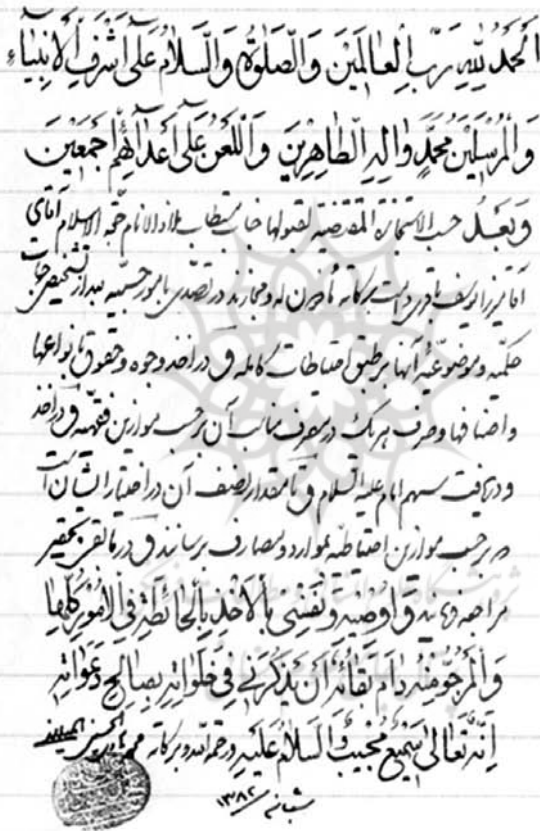 الحمد لله رب العالمین والصلوة والسلام علی اشرف الانبیاء
والمرسلین محمد واله الطاهرین واللعن علی اعدائهم اجمعین
وبعد حسب الاستجازة المقتضیه لقبولها جناب مستطاب ملاذ الانام حجة الاسلام آقای
آقا میرزا یوسف دامت برکاته مأذون له ومجازند در تصدی بامور حسبیه بعد از تشخیص جهات
حکمیه وموضوعیه آنها بر طبق احتیاطات کامله و در اخذ وجوه وحقوق بانواعها
واصنافها وصرف هر یک در مصرف مناسب آن بر حسب موازین فقهیه و در اخذ
ودریافت سهم امام علیه السلام و تا مقدار نصف آن در اختیار ایشان است
بر حسب موازین احتیاطیه بموارد ومصارف برسانند و در مابقی بحقیر
مراجعه نمایند و اوصیه ونفسی بالاخذ بالحائطة فی الامور کلها
والمرجو منه دام بقائه ان یذکرنی فی خلواته بصالح دعواته
انه تعالی سمیع مجیب والسلام علیه ورحمة الله وبرکاته محمد هادی الحسینی المیلانی
۱۳۸۲